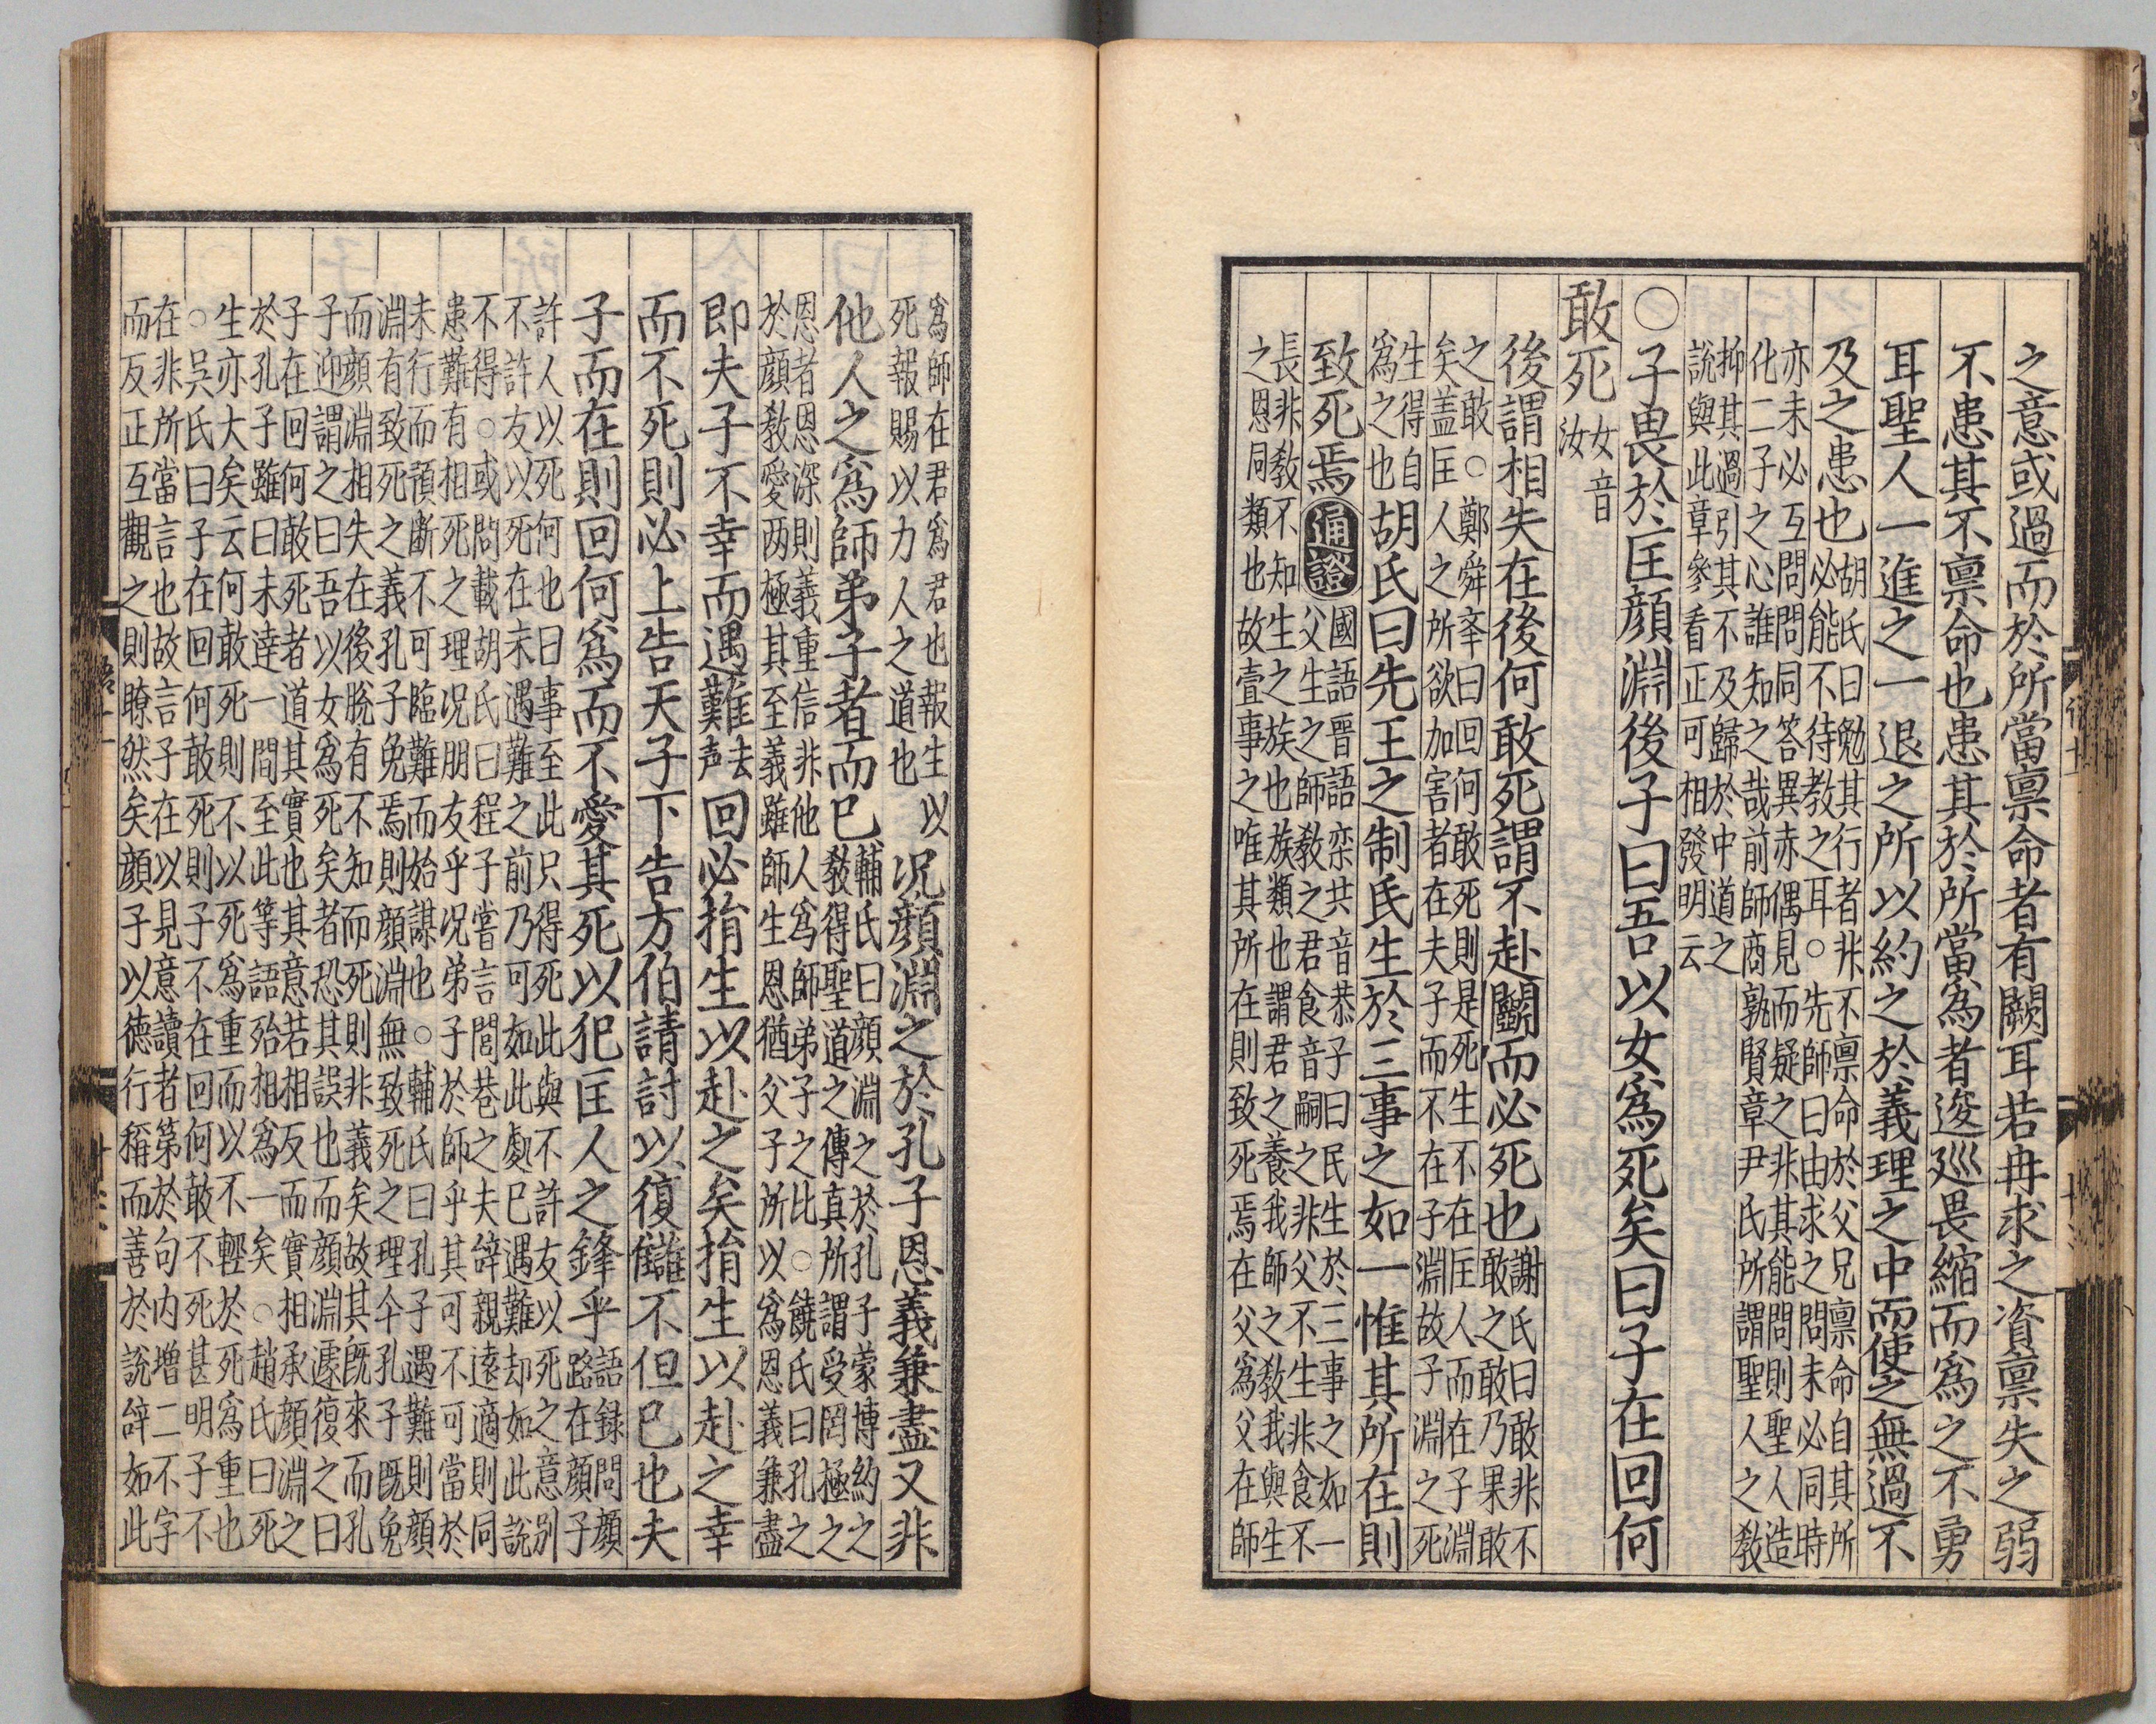 之意或過而於所當禀命者有闕耳若冉求之資禀失之弱
不患其不禀命也患其於所當為者逡巡畏縮而為之不勇
耳聖人一進之一退之所以約之於義理之中而使之無過不
及之患也
胡氏曰勉其行者非不禀命於父兄禀命自其所
必能不待教之耳○先師曰由求之問未必同時
亦未必互問問同答異赤偶見而疑之非其能問則聖人造
化二子之心誰知之哉前師商孰賢章尹氏所謂聖人之教
抑其過引其不及歸於中道之
說與此章參看正可相發明云
○子畏於匡顔淵後子曰吾以女為死矣曰子在回何
敢死
女音
汝
後謂相失在後何敢死謂不赴鬭而必死也
謝氏曰敢非不
敢之敢乃果敢
之敢○鄭舜㪯曰回何敢死則是死生不在匡人而在子淵
矣盖匡人之所欲加害者在夫子而不在子淵故子淵之死
生得自
為之也
胡氏曰先王之制民生於三事之如一惟其所在則
致死焉
通證
國語晋語栾共音恭子曰民生於三事之如一
父生之師教之君食音嗣之非父不生非食不
長非教不知生之族也族類也謂君之養我師之教我與生
之恩同類也故壹事之唯其所在則致死焉在父為父在師
為師在君為君也報生以
死報賜以力人之道也
况顔淵之於孔子恩義兼盡又非
他人之為師弟子者而已
輔氏曰顔淵之於孔子蒙博約之
教得聖道之傳真所謂受罔極之
恩者恩深則義重信非他人為師弟子之比○饒氏曰孔之
於顔教愛两極其至義雖師生恩猶父子所以為恩義兼盡
即夫子不幸而遇難
去
声
回必捐生以赴之矣捐生以赴之幸
而不死則必上告天子下告方伯請討以復讎不但已也夫
子而在則回何為而不愛其死以犯匡人之鋒乎
語録問顔
路在顔子
許人以死何也曰事至此只得死此與不許友以死之意别
不許友以死在未遇難之前乃可如此處已遇難却如此說
不得○或問載胡氏曰程子嘗言閭巷之夫辭親遠適則同
患難有相死之理况朋友乎况弟子於師乎其可不可當於
未行而預斷不可臨難而始謀也○輔氏曰孔子遇難則顔
淵有致死之義孔子免焉則顔淵無致死之理今孔子既免
而顔淵相失在後脫有不知而死死則非義矣故其既來而孔
子迎謂之曰吾以女為死矣者恐其誤也而顔淵遽復之曰
子在回何敢死者道其實也其意若相反而實相承顔淵之
於孔子雖曰未達一間至此等語殆相為一矣○趙氏曰死
生亦大矣云何敢死則不以死為重而以不輕於死為重也
○吳氏曰子在回何敢死則子不在回何敢不死甚明子不
在非所當言也故言子在以見意讀者第於句内增二不字
而反正互觀之則瞭然矣顔子以德行稱而善於說辭如此